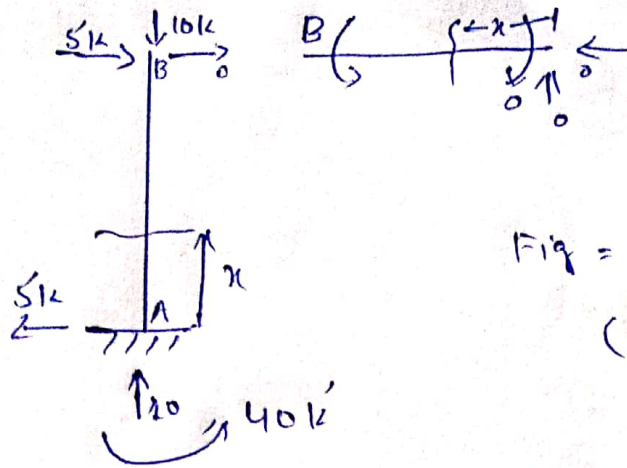 5k 10k B
B 0 x
0 0 0
Fig =
x
5k A (
10 40k'